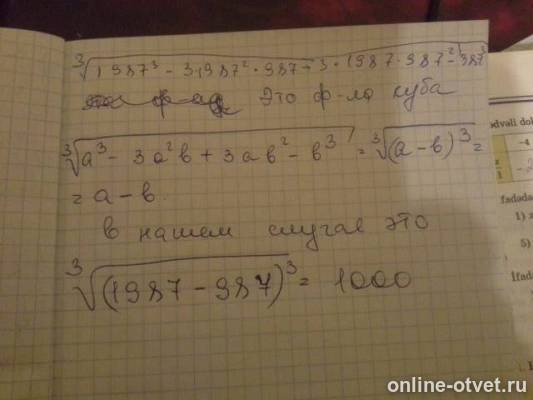 ∛(1987³ - 3·1987²·987 + 3·1987·987² - 987³)
это ф-ла куба
∛(a³ - 3a²b + 3ab² - b³) = ∛(a-b)³ =
= a - b
в нашем случае это
∛(1987 - 987)³ = 1000
dvəli dol
-4
1) x
5)
İfadə
online-otvet.ru